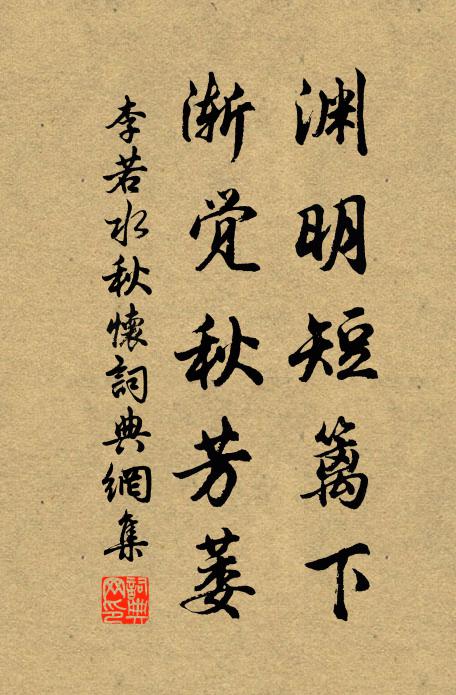 渊明短篱下
渐觉秋芳萎
李若水秋懷詞典網集
詞典
网印